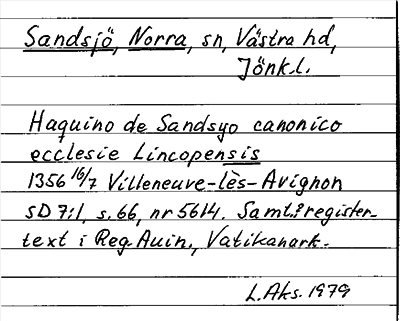 Sandsjö, Norra, sn, Västra hd,
Jönk.l.
Haquino de Sandsyo canonico
ecclesie Lincopensis
1356 16/7 Villeneuve-lès-Avignon
SD 7:1, s. 66, nr 5614. Samt.? register-
text i Reg. Auin., Vatikanark.
L.Aks. 1979